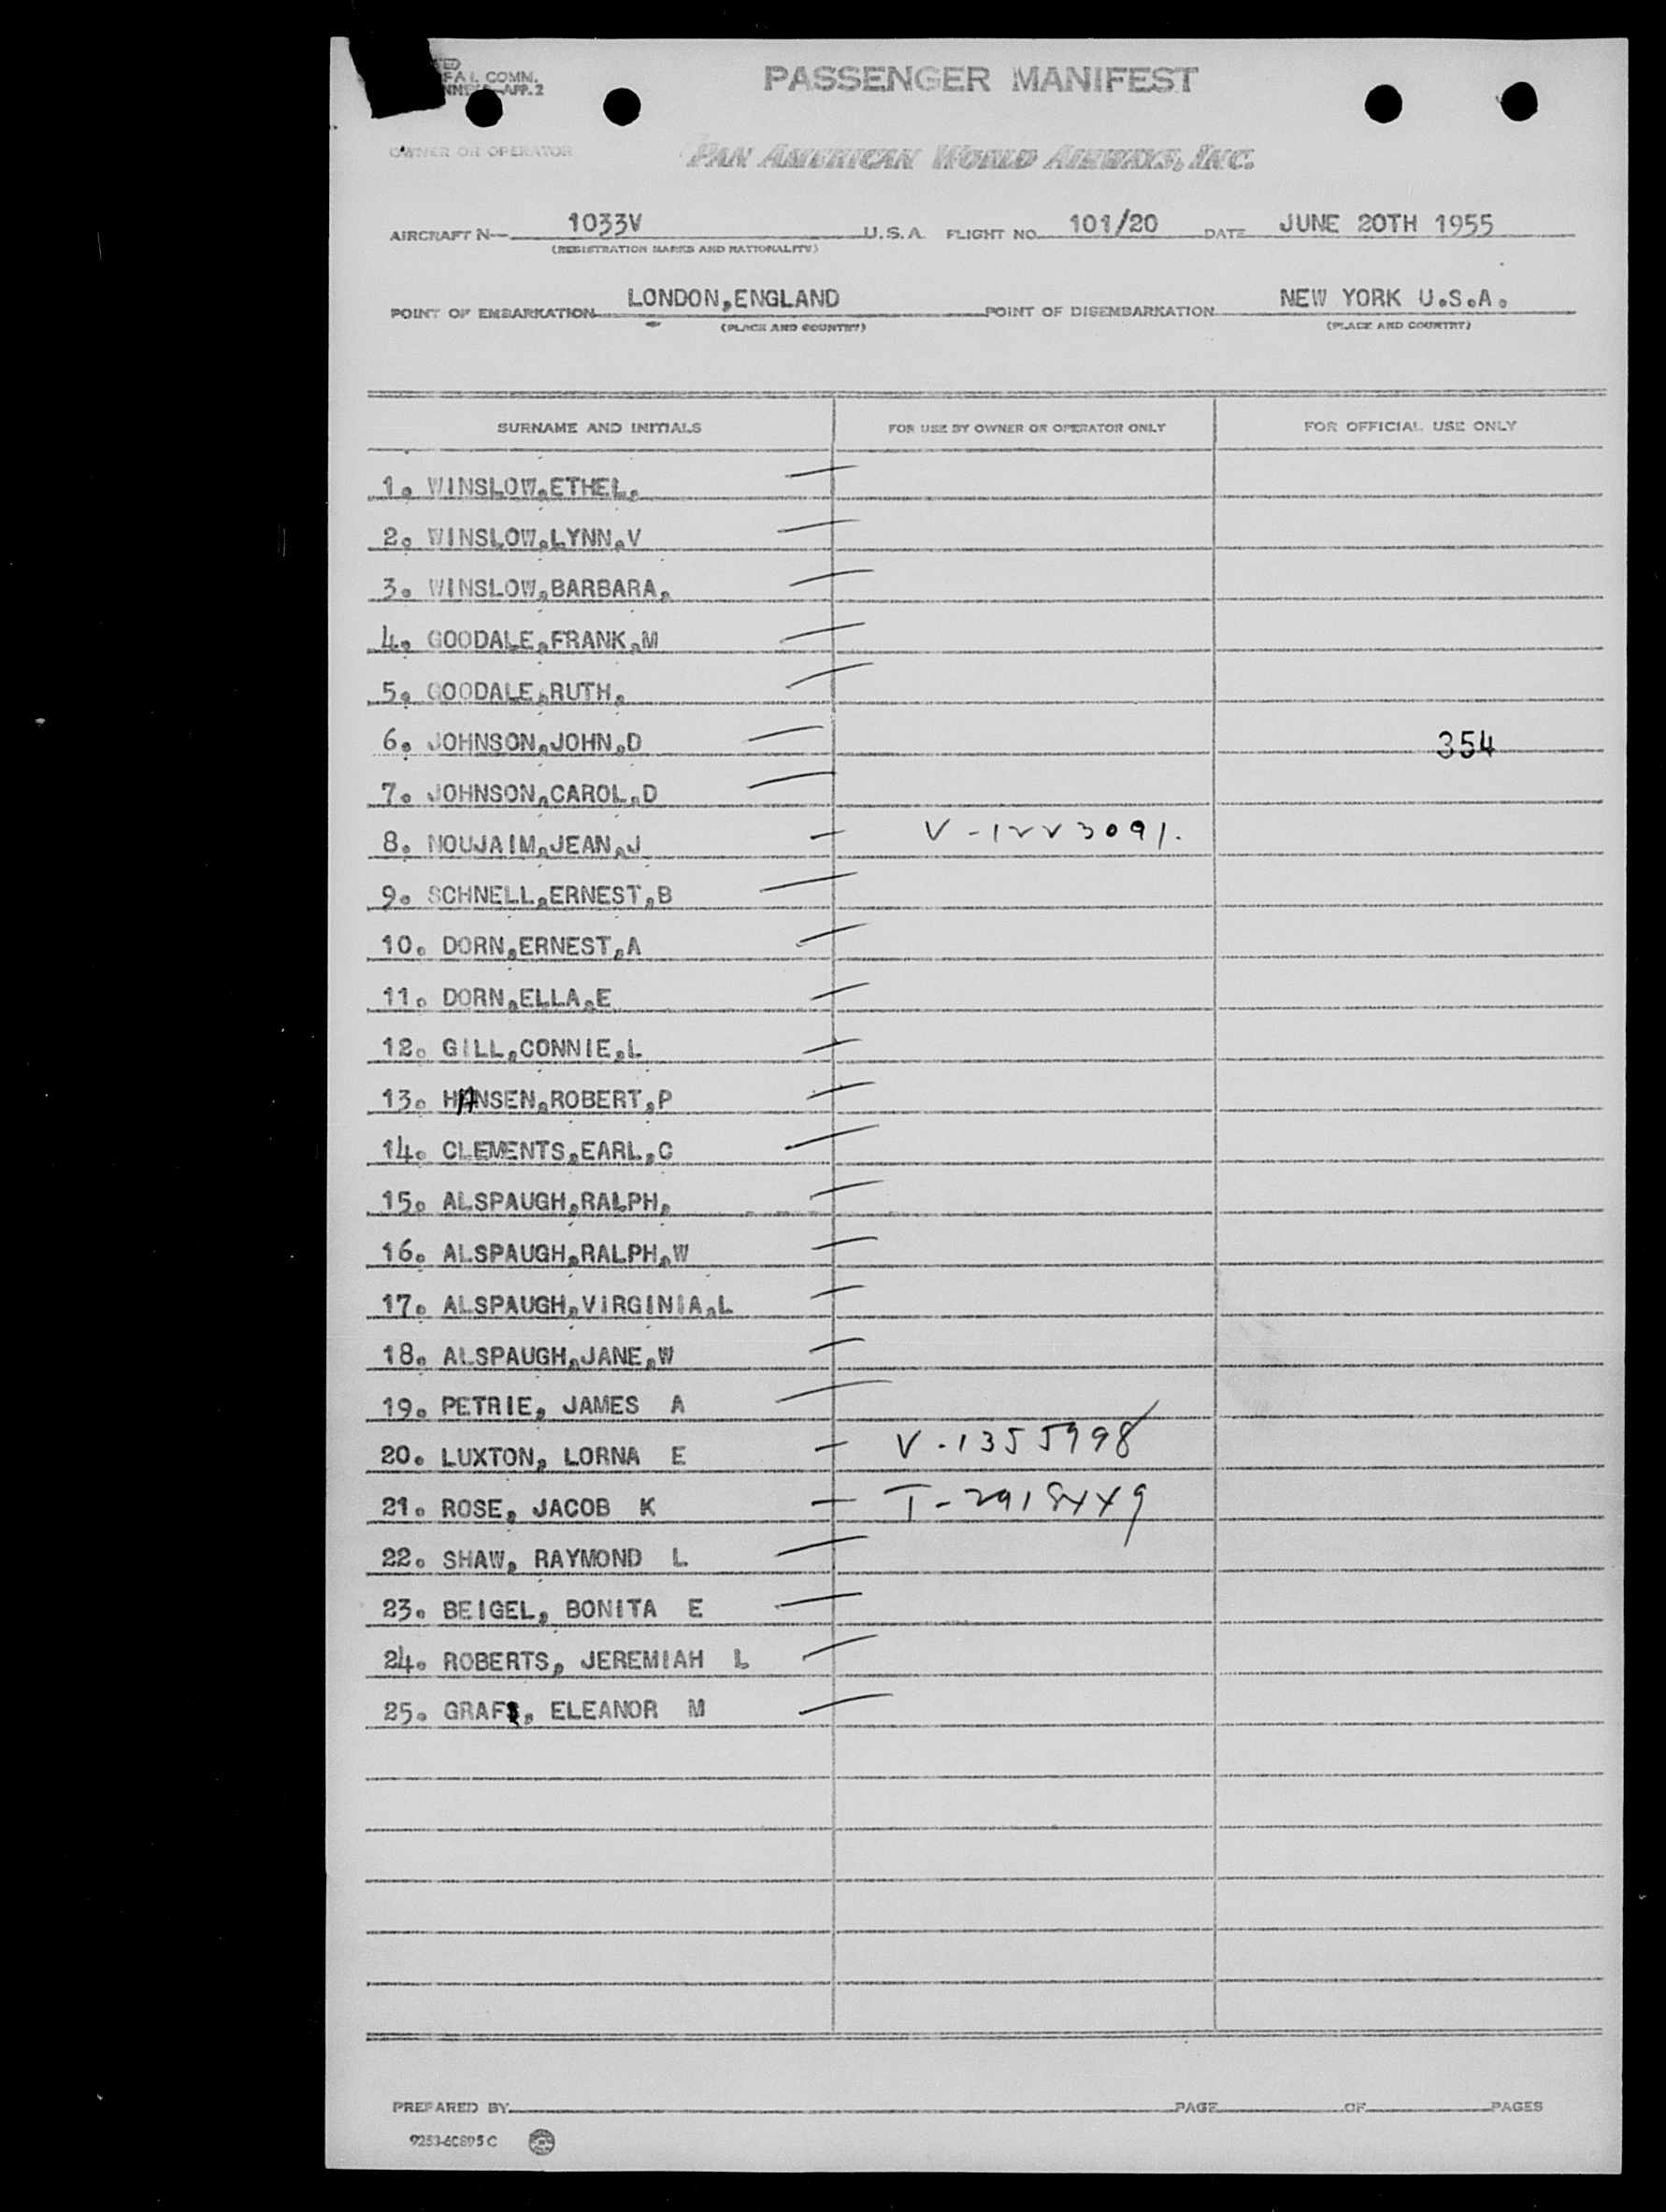 PASSENGER MANIFEST
OWNER OR OPERATOR PAN AMERICAN WORLD AIRWAYS, INC.
AIRCRAFT N— 1033V U.S.A. FLIGHT NO. 101/20 DATE JUNE 20TH 1955
(REGISTRATION MARKS AND NATIONALITY)
POINT OF EMBARKATION LONDON,ENGLAND POINT OF DISEMBARKATION NEW YORK U.S.A.
(PLACE AND COUNTRY) (PLACE AND COUNTRY)
SURNAME AND INITIALS FOR USE BY OWNER OR OPERATOR ONLY FOR OFFICIAL USE ONLY
1. WINSLOW,ETHEL.
2. WINSLOW,LYNN,V
3. WINSLOW,BARBARA.
4. GOODALE,FRANK,M
5. GOODALE,RUTH.
6. JOHNSON,JOHN,D 354
7. JOHNSON,CAROL,D
8. NOUJAIM,JEAN,J V-1223091.
9. SCHNELL,ERNEST,B
10. DORN,ERNEST,A
11. DORN,ELLA,E
12. GILL,CONNIE,L
13. HANSEN,ROBERT,P
14. CLEMENTS,EARL,C
15. ALSPAUGH,RALPH.
16. ALSPAUGH,RALPH,W
17. ALSPAUGH,VIRGINIA,L
18. ALSPAUGH,JANE,W
19. PETRIE, JAMES A
20. LUXTON, LORNA E V-1355998
21. ROSE, JACOB K
22. SHAW, RAYMOND L
23. BEIGEL, BONITA E
24. ROBERTS, JEREMIAH L
25. ELEANOR M
PREPARED BY PAGE OF PAGES